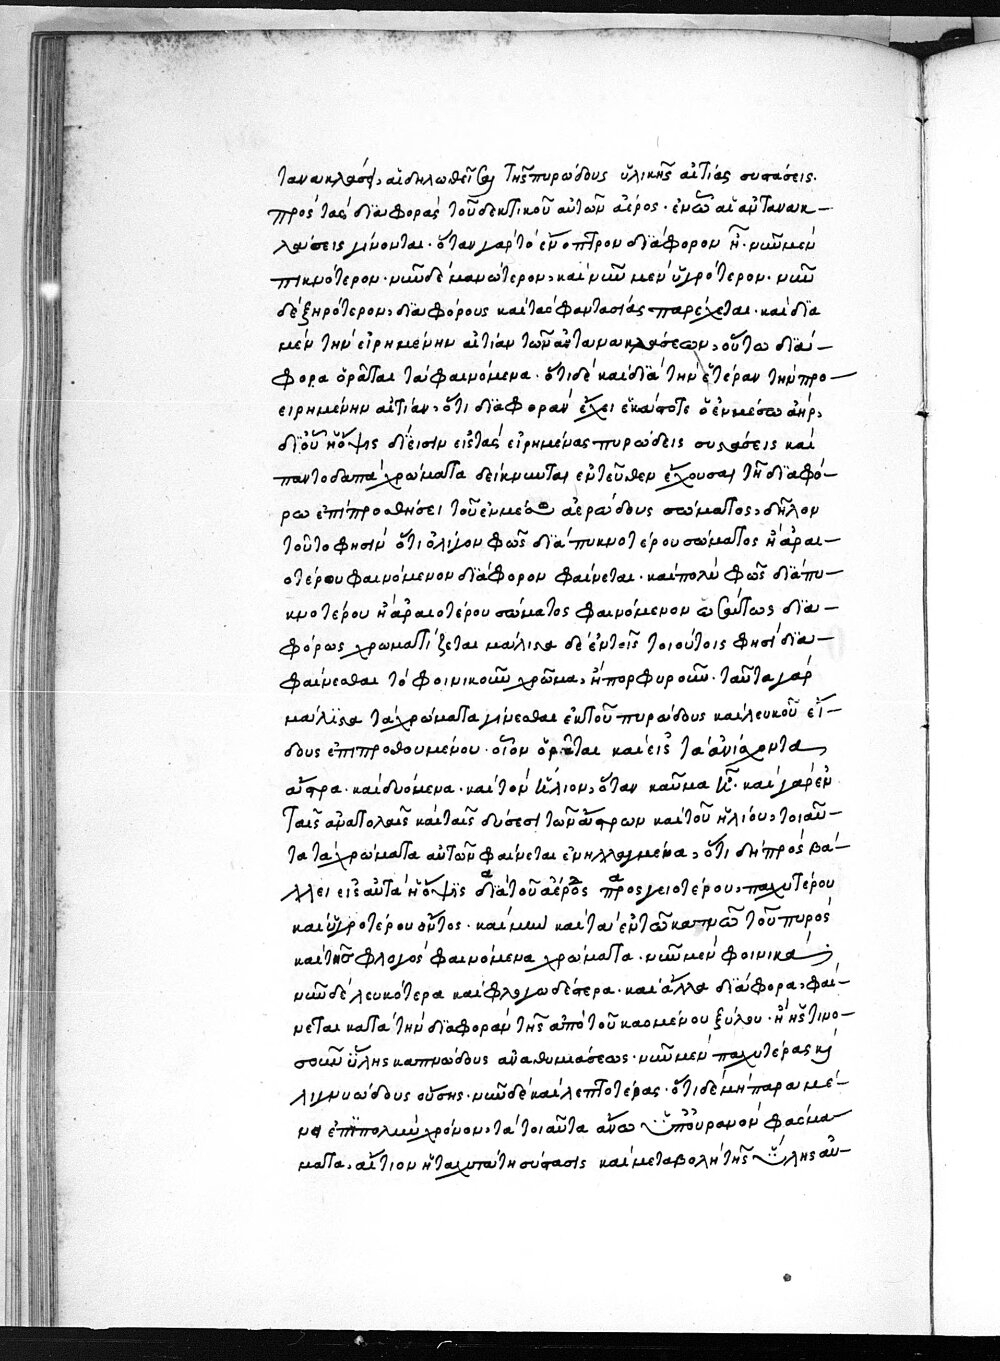 τανακλάσεις, αἱ δηλωθεῖσαι τῆς πυρώδους ὑλικῆς αἰτίας συστάσεις.
πρὸς τὰς διαφορὰς τοῦ δεκτικοῦ αὐτῶν ἀέρος. ἐν ὧ αἱ ἀντανακ-
λάσεις γίνονται. ὅταν γὰρ τὸ ἔνοπτρον διάφορον ἦ. νῦν μὲν
πυκνότερον. νῦν δὲ μανώτερον, καὶ νῦν μὲν ὑγρότερον. νῦν
δὲ ξηρότερον, διαφόρους καὶ τὰς φαντασίας παρέχεται. καὶ διὰ
μὲν τὴν εἰρημένην αἰτίαν τῶν ἀντανακλάσεων, οὕτω διά-
φορα ὁρᾶται τὰ φαινόμενα. ὅτι δὲ καὶ διὰ τὴν ἑτέραν τὴν προ-
ειρημένην αἰτίαν, ὅτι διαφορὰν ἔχει ἑκάστοτε ὁ ἐν μέσω ἀὴρ,
δι' οὗ ἡ ὄψις δίεισιν εἰς τὰς εἰρημένας πυρώδεις συστάσεις καὶ
παντοδαπὰ χρώματα δείκνυνται ἐντεῦθεν ἔχουσαι τῆ διαφό-
ρω ἐπιπροσθήσει τοῦ ἐν μέσω ἀερώδους σώματος, δῆλον
τοῦτο φησὶν ὅτι ὀλίγον φῶς διὰ πυκνοτέρου σώματος ἢ ἀραι-
οτέρου φαινόμενον διάφορον φαίνεται. καὶ πολὺ φῶς διὰ πυ-
κνοτέρου ἢ ἀραιοτέρου σώματος φαινόμενον ὡσαύτως δια-
φόρως χρωματίζεται μάλιστα δὲ ἐν τοῖς τοιούτοις φησὶ δια-
φαίνεσθαι τὸ φοινικοῦν χρῶμα, ἢ πορφυροῦν. ταῦτα γὰρ
μάλιστα τὰ χρώματα γίνεσθαι ἐκ τοῦ πυρώδους καὶ λευκοῦ εἴ-
δους ἐπιπροσθουμένου. οἷον ὁρᾶται καὶ εἰς τὰ ἀνίσχοντα
ἄστρα. καὶ δυόμενα. καὶ τὸν ἥλιον, ὅταν καῦμα ἦ. καὶ γὰρ ἐν
ταῖς ἀνατολαῖς καὶ ταῖς δύσεσι τῶν ἄστρων καὶ τοῦ ἡλίου, τοιαῦ-
τα τὰ χρώματα αὐτῶν φαίνεται ἐνηλλαγμένα, ὅτι δὴ προσβά-
λλει εἰς αὐτὰ ἡ ὄψις διὰ τοῦ ἀέρος προσγειοτέρου, παχυτέρου
καὶ ὑγροτέρου ὄντος. καὶ μὴν καὶ τὰ ἐν τῶ καπνῶ τοῦ πυρὸς
καὶ τῆς φλογὸς φαινόμενα χρώματα. νῦν μὲν φοινικὰ,
νῦν δὲ λευκότερα καὶ φλογωδέστερα. καὶ ἄλλα διάφορα, φαί-
νεται κατὰ τὴν διαφορὰν τῆς ἀπὸ τοῦ καομένου ξύλου. ἢ ἧς τινο-
σοῦν ὕλης καπνώδους ἀναθυμιάσεως. νῦν μὲν παχυτέρας καὶ
λιγνυώδους οὔσης. νῦν δὲ καὶ λεπτοτέρας. ὅτι δὲ μὴ παραμέ-
νει ἐπὶ πολὺν χρόνον, τὰ τοιαῦτα ἄνω ὑπ' οὐρανὸν φάσμα-
ματα, αἴτιον ἡ ταχυτάτη σύστασις καὶ μεταβολὴ τῆς ὕλης αὐ-